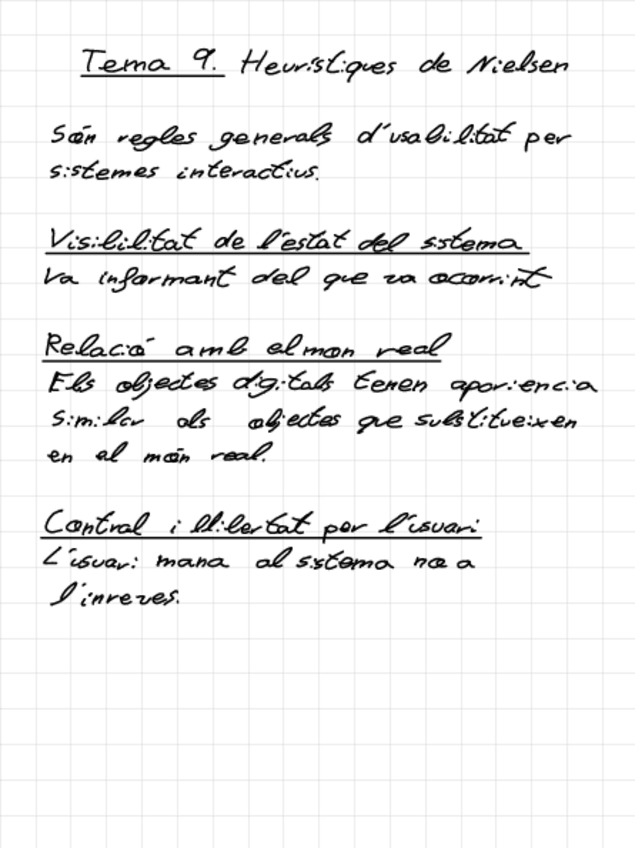 Tema 9. Heurístiques de Nielsen
Són regles generals d'usabilitat per
sistemes interactius.
Visibilitat de l'estat del sistema
Va informant del que va ocorrint
Relació amb el mon real
Els objectes digitals tenen apariencia
similar als objectes que substitueixen
en el món real.
Control i llibertat per l'usuari
L'usuari mana al sistema no a
l'inreves.